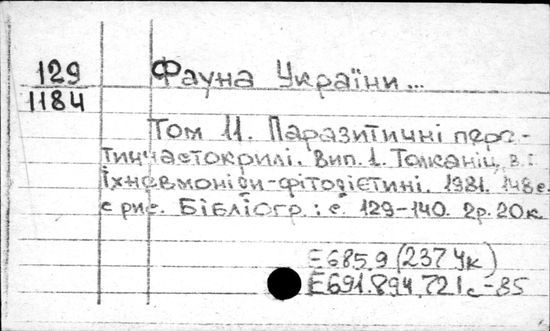 129 Фауна України...
1184
Том 11. Паразитичні пере-
тинчастокрилі. Вип. 1. Толканіц, В.І.
Іхневмоніди-фітодієтині. 1981. 148 с.
с рис. Бібліогр.: с. 129-140. 2р. 20к
Е685.9 (237Ук)
Е691.894,721с-85